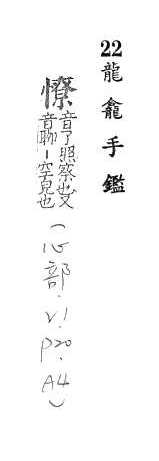 22 龍龕手鑑
憭 音了照察也又
音聊丨空皃也
(心部.V.1
P20.
A4)